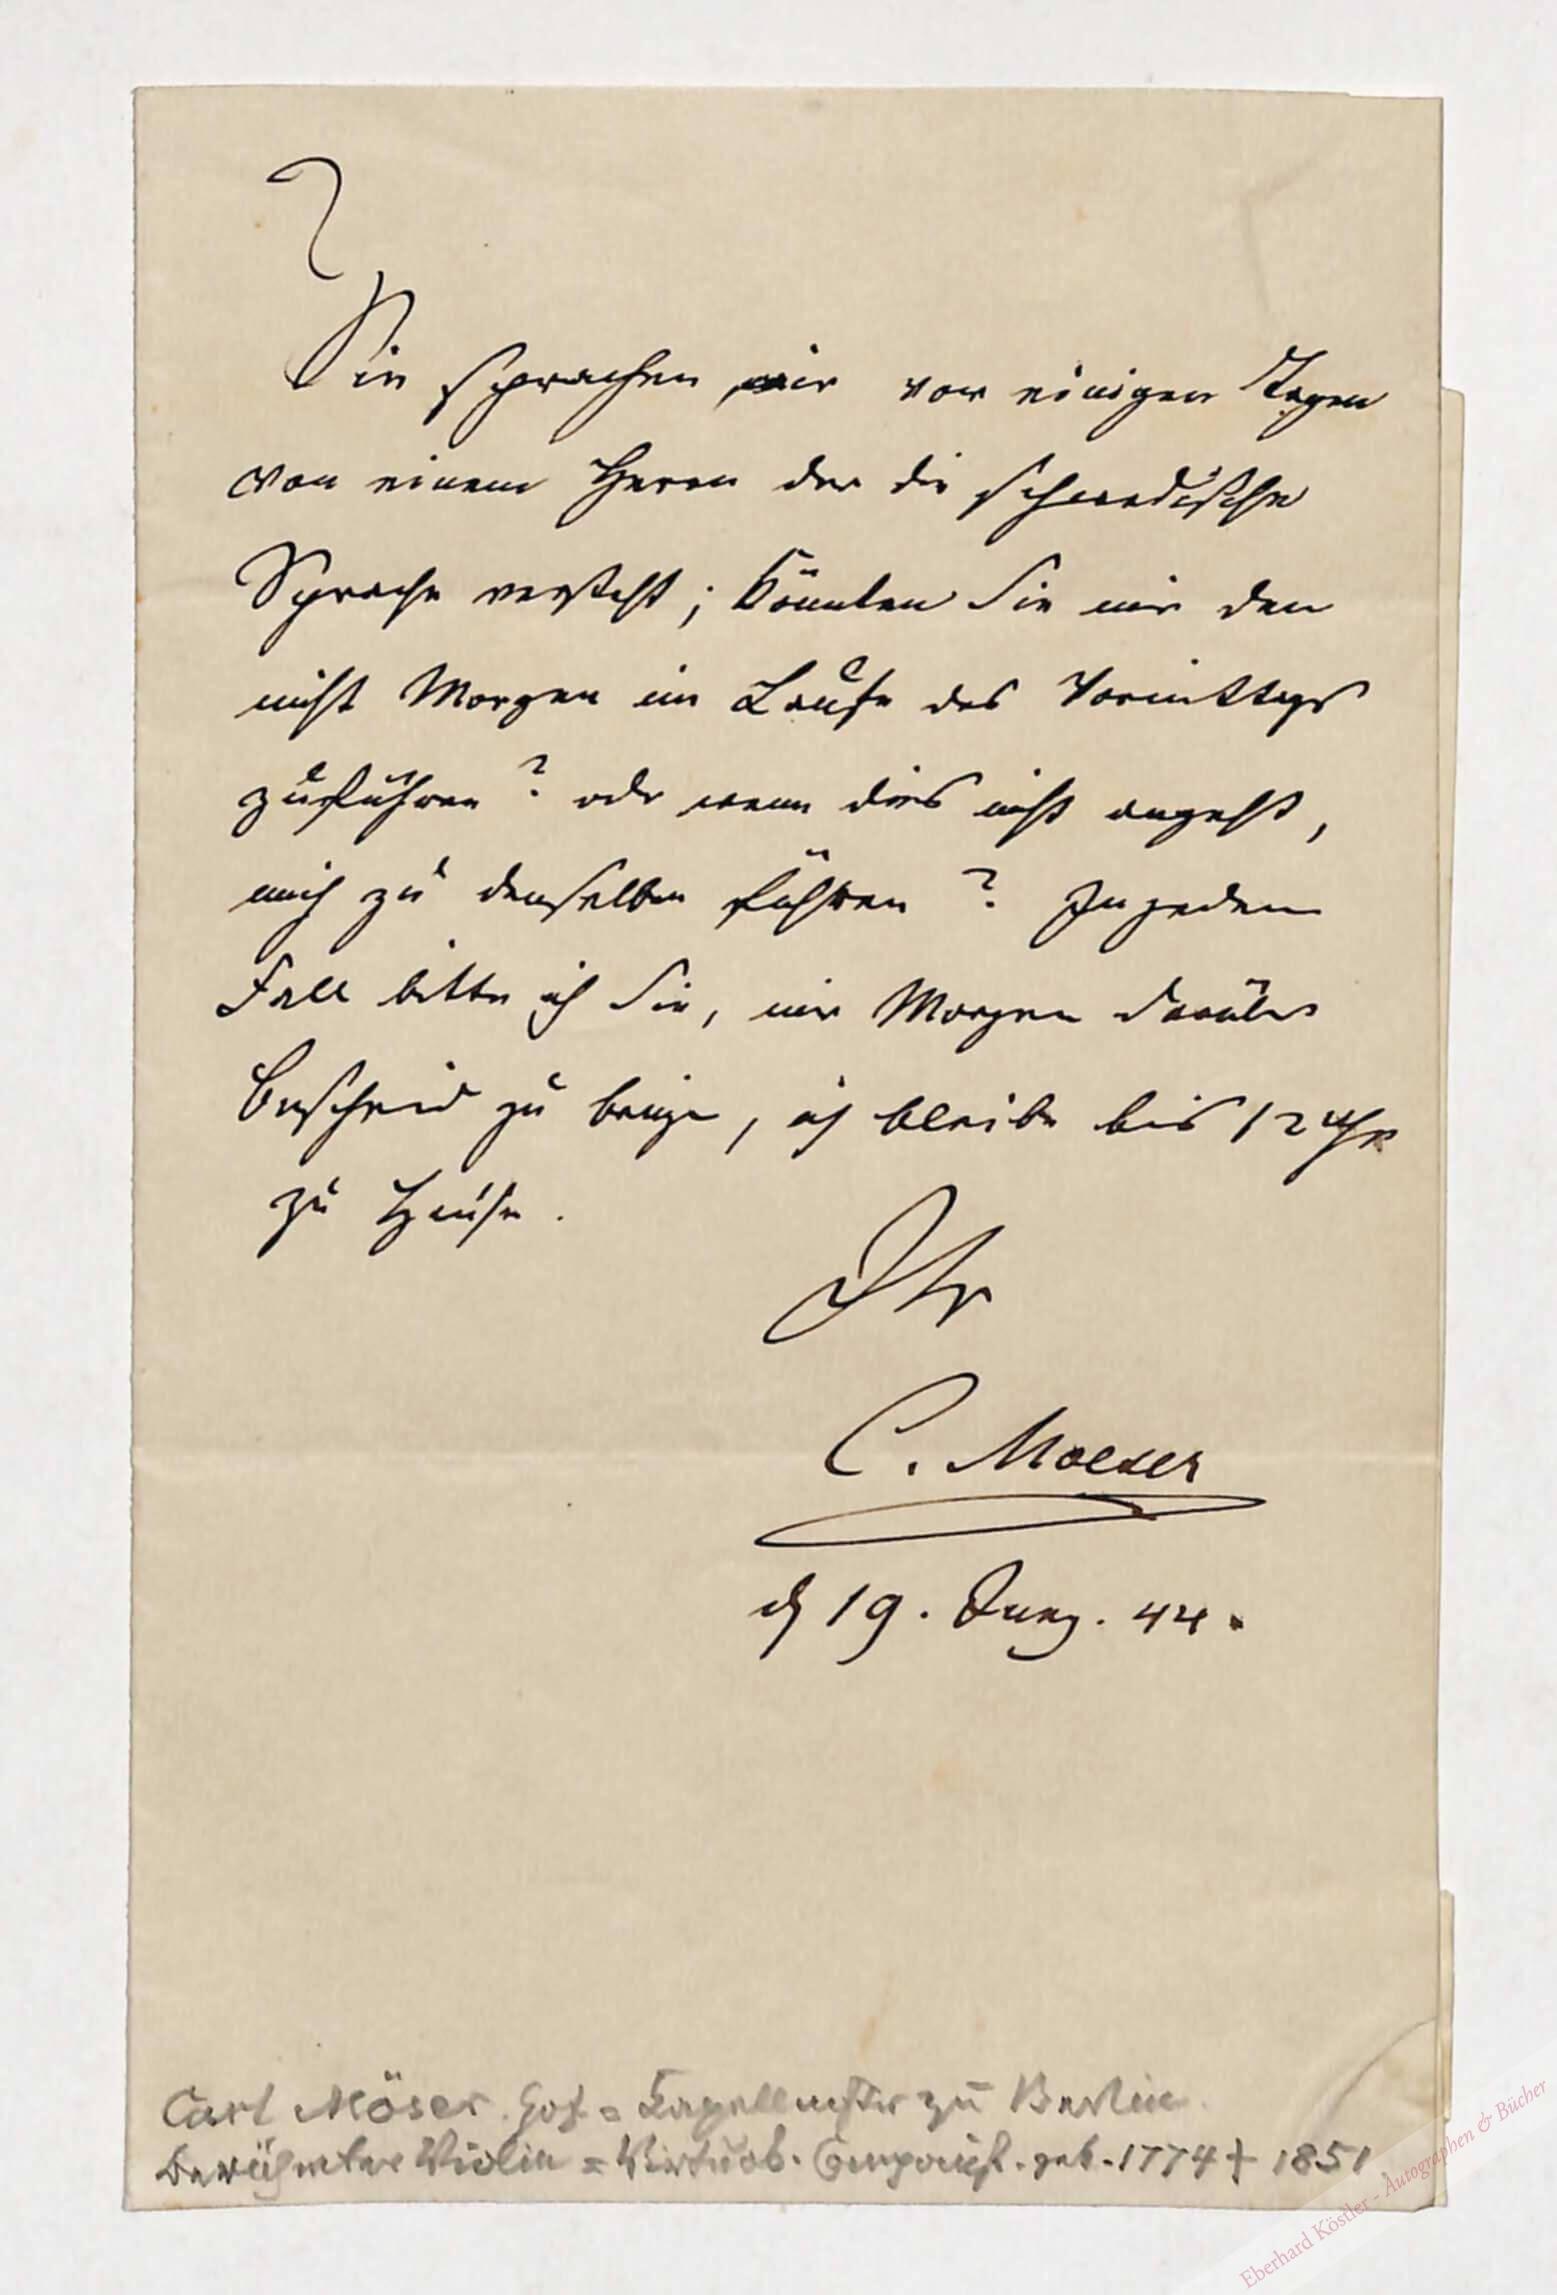 Sie sprachen mir vor einigen Tagen
von einem Herrn der die schwedische
Sprache versteht; könnten Sie mir den
nicht Morgen im Laufe des Vormittags
zuführen? oder wenn dies nicht angeht,
mich zu denselben führen? In jedem
Fall bitte ich Sie, mir Morgen darüber
Bescheid zu bringen, ich bleibe bis 12 Uhr
zu Hause.
Ihr
C. Moeser
d 19. Juny. 44.
Carl Möser. Hof = Kapellmeister zu Berlin.
Berühmter Violin = Virtuos. Componist. geb. 1774 † 1851
Eberhard Köstler - Autographen & Bücher